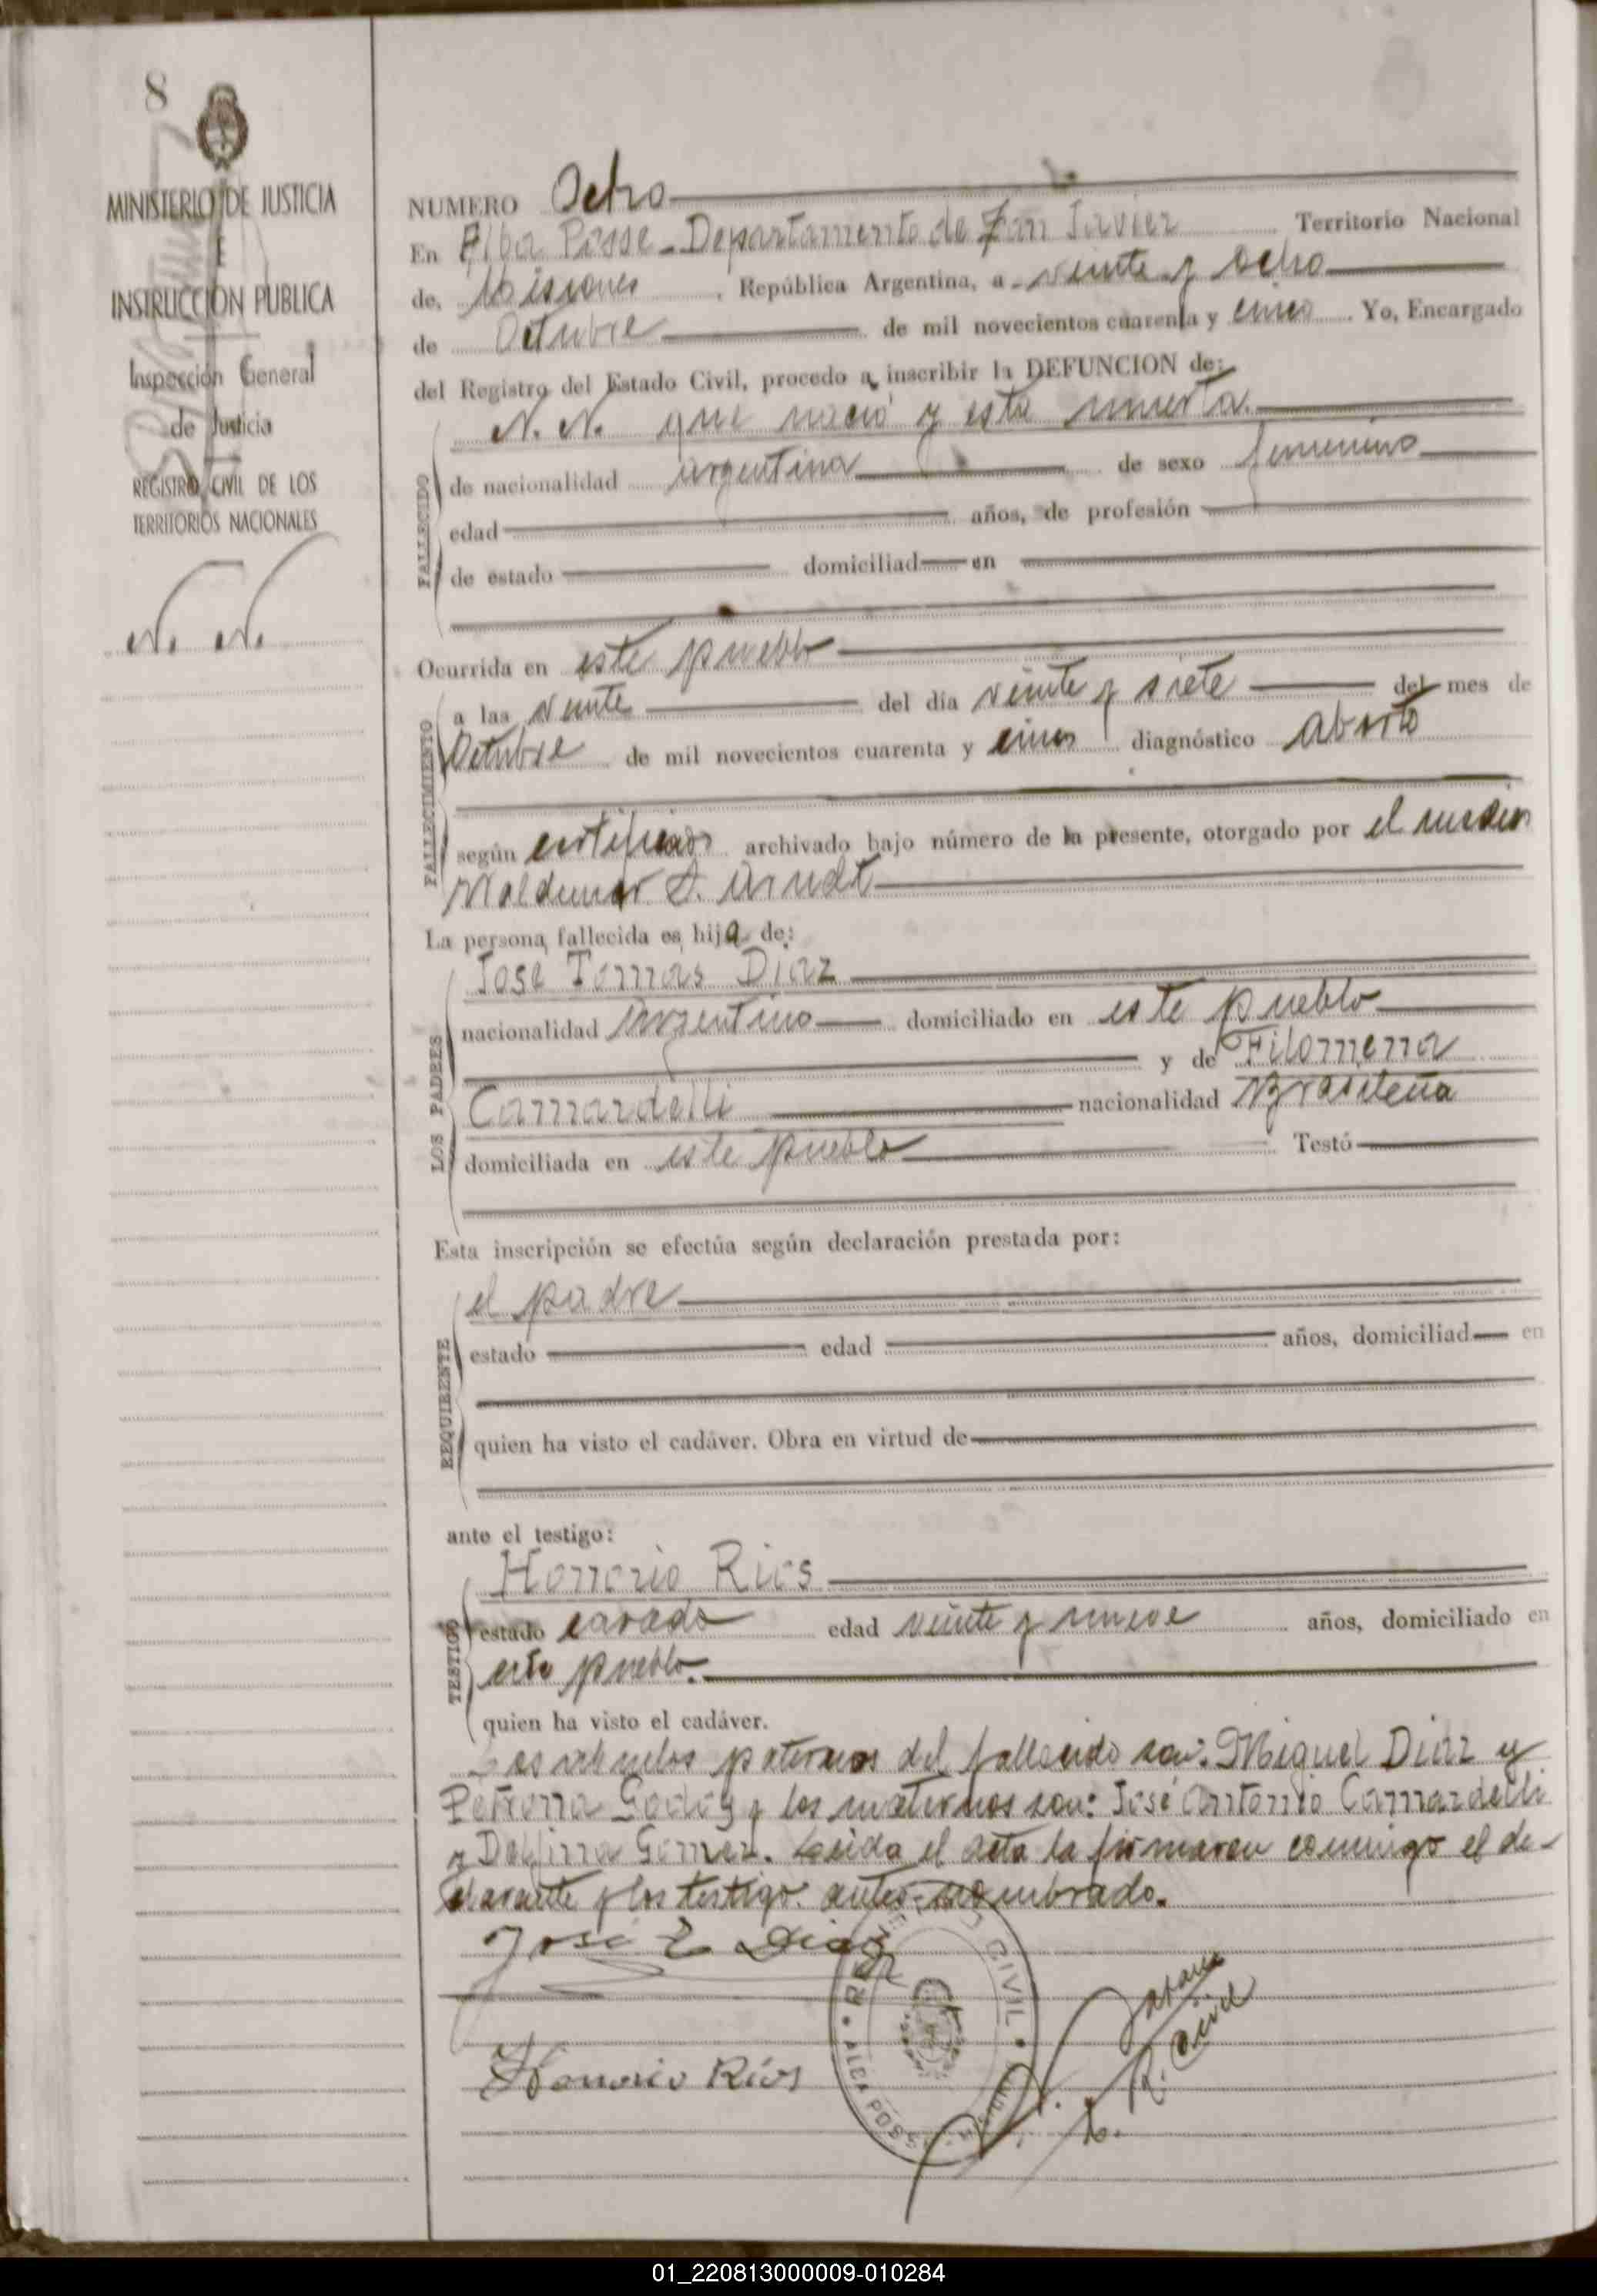 8
MINISTERIO DE JUSTICIA
E
INSTRUCCIÓN PUBLICA
Inspección General
de Justicia
REGISTRO CIVIL DE LOS
TERRITORIOS NACIONALES
N. N.
NUMERO Ocho
En Alba Posse - Departamento de San Javier Territorio Nacional
de, Misiones, República Argentina, a veinte y ocho
de Octubre de mil novecientos cuarenta y cinco. Yo, Encargado
del Registro del Estado Civil, procedo a inscribir la DEFUNCION de:
N. N. que nació y esta muerta.
FALLECIDO
de nacionalidad argentina de sexo femenino
edad años, de profesión
de estado domiciliad en
Ocurrida en este pueblo
FALLECIMIENTO
a las veinte del día veinte y siete del mes de
Octubre de mil novecientos cuarenta y cinco diagnóstico aborto
según certificado archivado bajo número de la presente, otorgado por el medico
Waldemar Arndt
La persona fallecida es hija de:
LOS PADRES
Jose Tomas Diaz
nacionalidad Argentino domiciliado en este pueblo
y de Filomena
Camardelli nacionalidad Brasileña
domiciliada en este pueblo Testó
Esta inscripción se efectúa según declaración prestada por:
REQUIRENTE
el padre
estado edad años, domiciliad en
quien ha visto el cadáver. Obra en virtud de
ante el testigo:
TESTIGO
Honorio Rios
estado casado edad veinte y nueve años, domiciliado en
este pueblo.
quien ha visto el cadáver.
Los abuelos paternos del fallecido son: Miguel Diaz y
Petrona Godoy y los maternos son: José Antonio Camardelli
y Delfina Gomez. Leida el acta la firmaron conmigo el de-
clarante y los testigo antes nombrado.
José T. Diaz
Honorio Ríos
REGISTRO CIVIL
ALBA POSSE
R. Civil
01_220813000009-010284